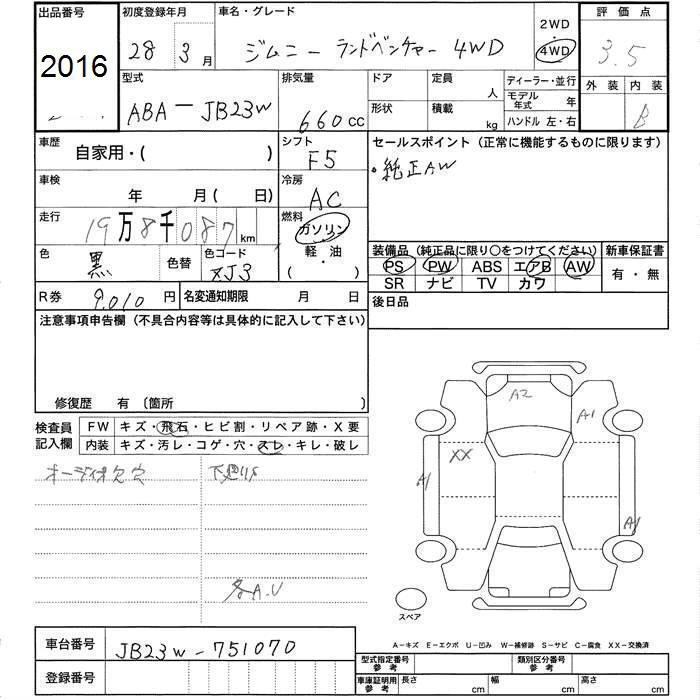 出品番号 初度登録年月 車名・グレード 2WD 評価点
2016 28 3月 ジムニー ランドベンチャー 4WD 4WD 3.5
型式 排気量 ドア 定員 人 ディーラー・並行 外装 内装
ABA-JB23W 660cc 形状 積載 kg モデル年式 年 B
ハンドル 左・右
車歴 自家用・( ) シフト F5 セールスポイント(正常に機能するものに限ります)
・純正AW
車検 年 月( 日) 冷房 AC
走行 19万8千087km 燃料 ガソリン
軽・油
・( )
色 黒 色替 色コード ZJ3
装備品(純正品に限り○をつけてください) 新車保証書
PS PW ABS エアB AW 有・無
SR ナビ TV カワ
R券 9,010円 名変通知期限 月 日 後日品
注意事項申告欄(不具合内容等は具体的に記入して下さい)
修復歴 有 〔箇所
検査員記入欄 FW キズ・飛石・ヒビ割・リペア跡・X要
内装 キズ・汚レ・コゲ・穴・スレ・キレ・破レ
オーディオ欠穴 下廻リS
各A.U
A2
A1
XX
A1
A1
スペア
A-キズ E-エクボ U-凹み W-補修跡 S-サビ C-腐食 XX-交換済
車台番号 JB23W-751070
登録番号
型式指定番号 参考 類別区分番号 参考
車庫証明用 参考 長さ cm 幅 cm 高さ cm